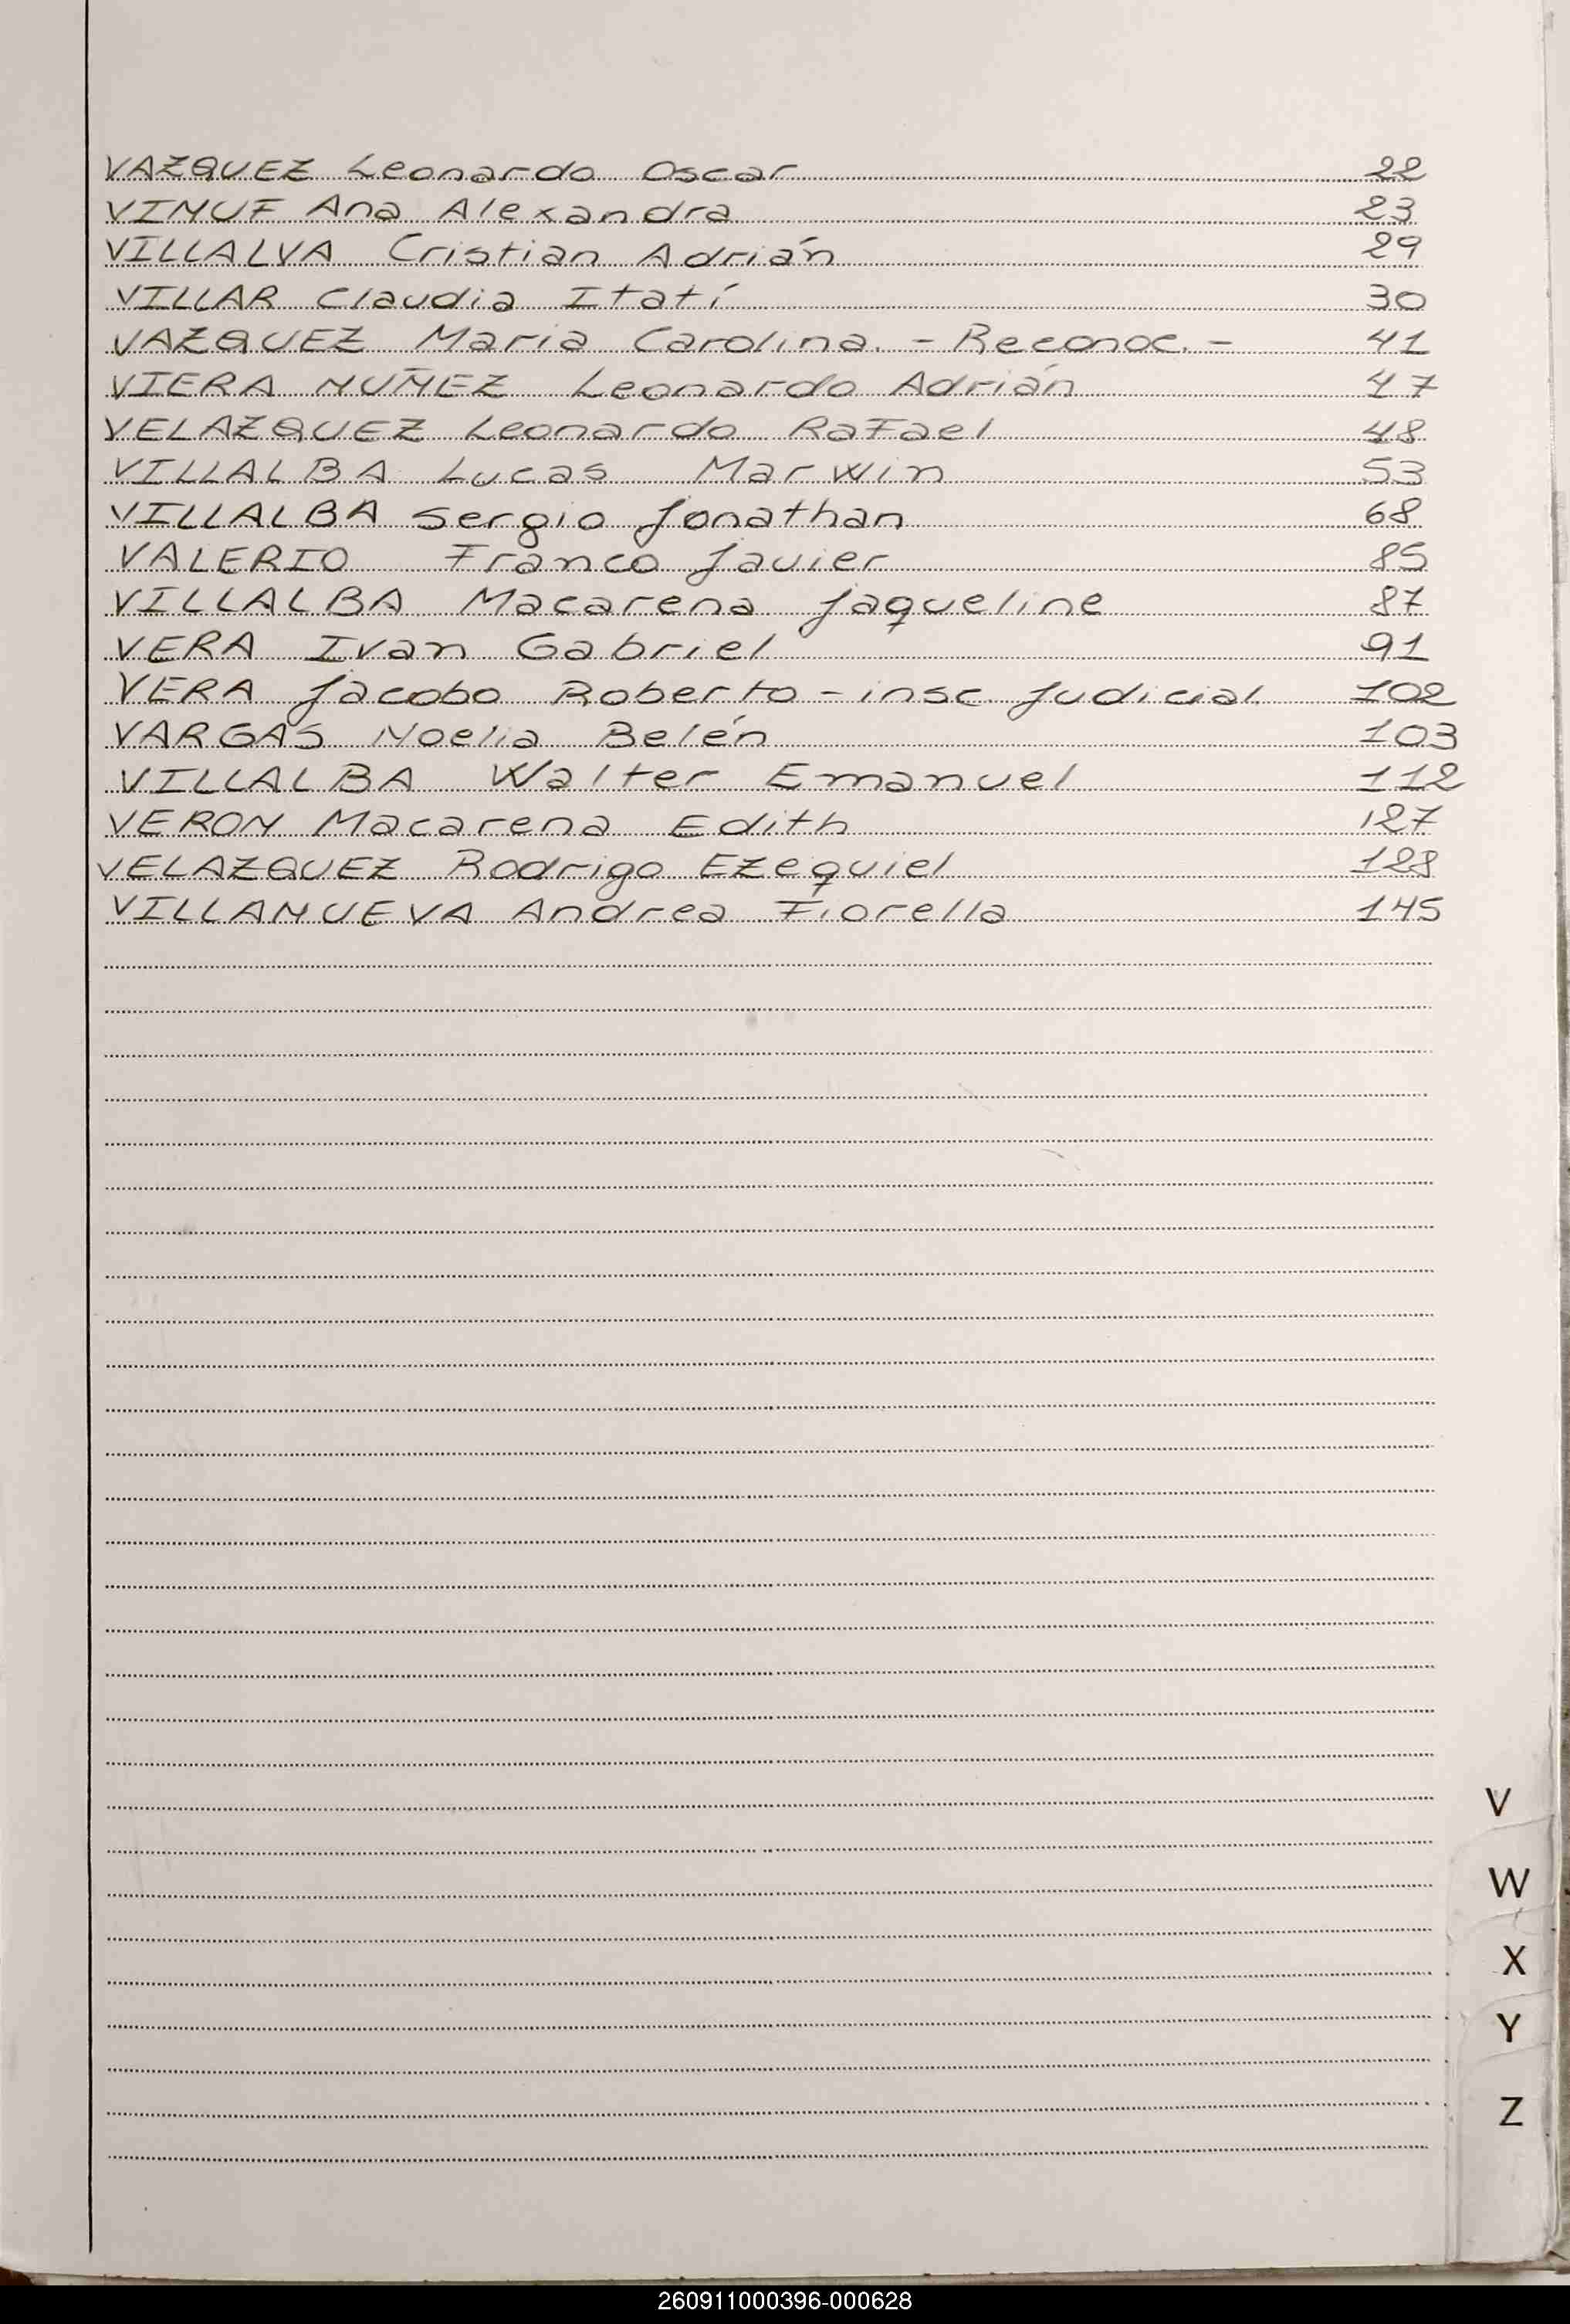 VAZQUEZ Leonardo Oscar 22
VIMUF Ana Alexandra 23
VILLALVA Cristian Adrián 29
VILLAR Claudia Itatí 30
VAZQUEZ Maria Carolina. - Reconoc. - 41
VIERA NUÑEZ Leonardo Adrián 47
VELAZQUEZ Leonardo RaFael 48
VILLALBA Lucas Marwin 53
VILLALBA Sergio Jonathan 68
VALERIO Franco Javier 85
VILLALBA Macarena Jaqueline 87
VERA Ivan Gabriel 91
VERA Jacobo Roberto - insc. Judicial 102
VARGAS Noelia Belén 103
VILLALBA Walter Emanuel 112
VERON Macarena Edith 127
VELAZQUEZ Rodrigo Ezequiel 128
VILLANUEVA Andrea Fiorella 145
V
W
X
Y
Z
260911000396-000628